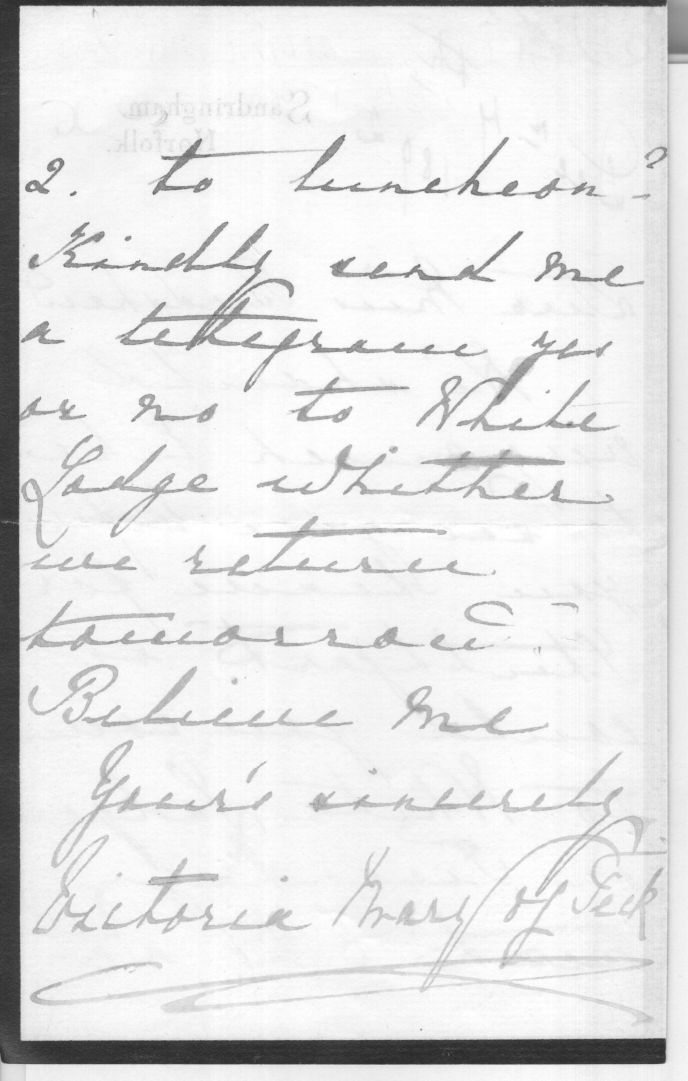 Sandringham,
Norfolk.
2. to luncheon?
Kindly send me
a telegram yes
or no to White
Lodge whither
we return
tomorrow.
Believe me
Your's sincerely
Victoria Mary of Teck